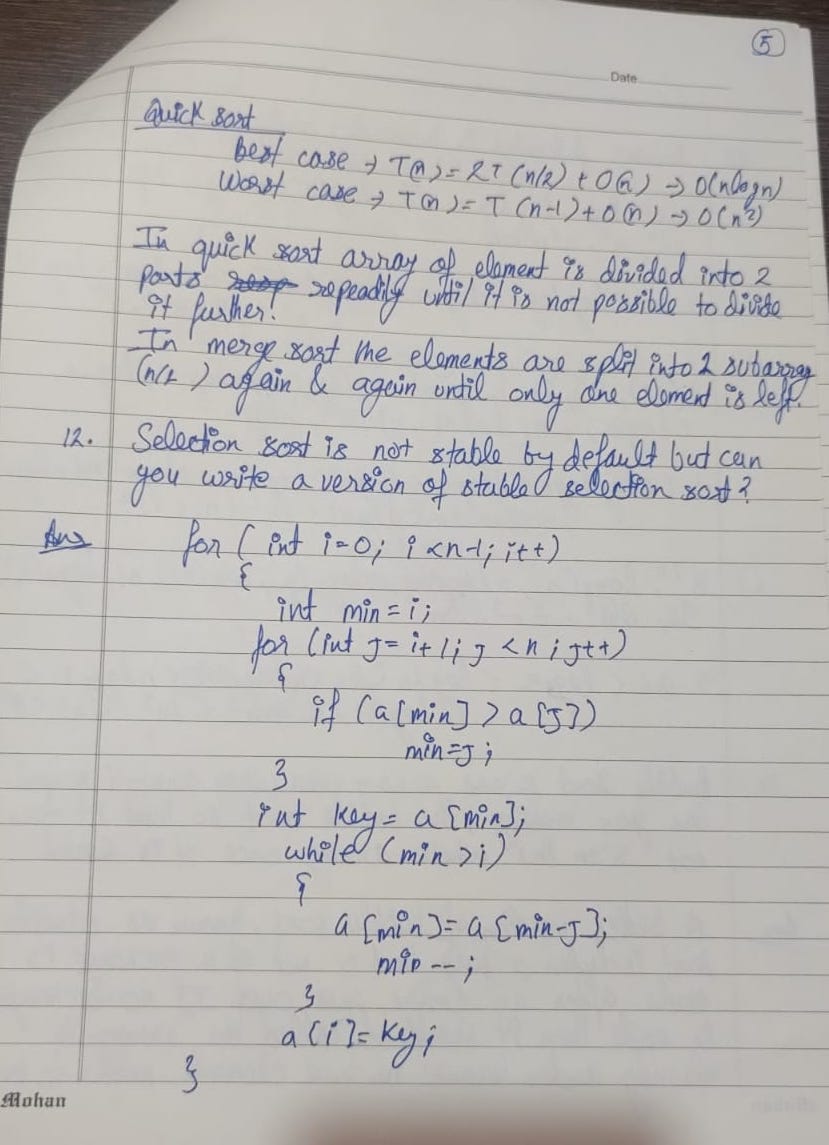 5
Date
Quick sort
Best case → T(n) = 2T(n/2) + O(n) → O(nlogn)
Worst case → T(n) = T(n-1) + O(n) → O(n²)
In quick sort array of element is divided into 2
parts repeadily until it is not possible to divide
it further.
In merge sort the elements are split into 2 subarray
(n/2) again & again until only one element is left.
12. Selection sort is not stable by default but can
you write a version of stable selection sort?
Ans for (int i=0; i<n-1; i++)
{
int min = i;
for (int j = i+1; j<n; j++)
{
if (a[min] > a[j])
min=j;
}
int key = a[min];
while (min>i)
{
a[min] = a[min-j];
min--;
}
a[i] = key;
}
Mohan